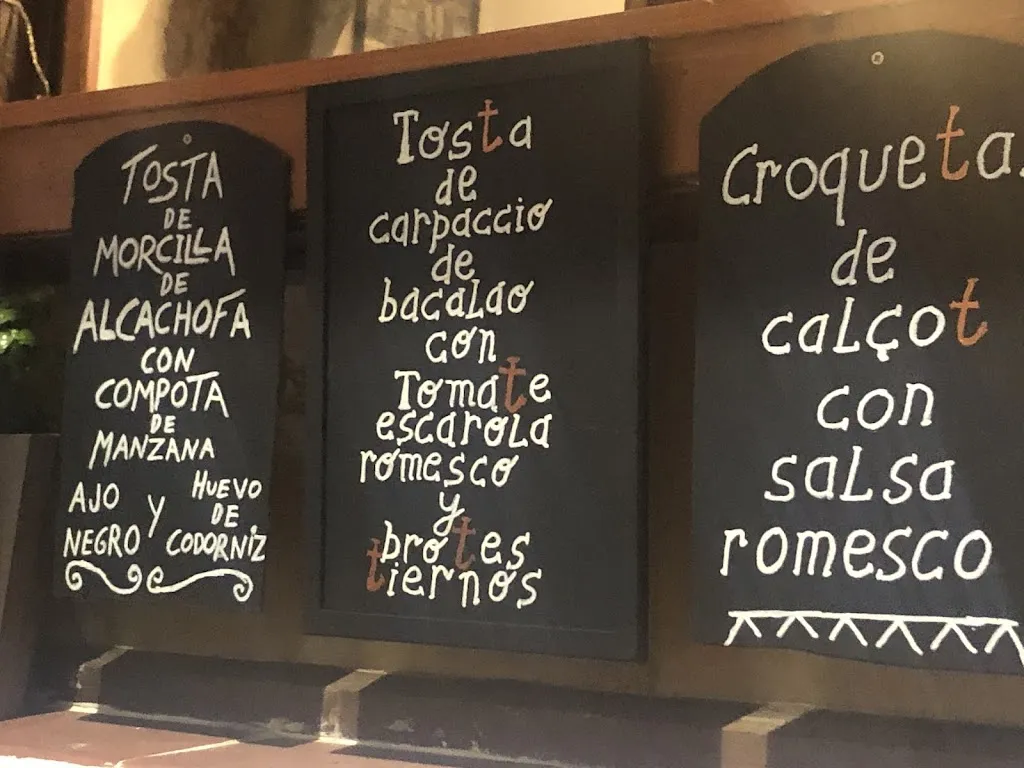 TOSTA
DE
MORCILLA
DE
ALCACHOFA
CON
COMPOTA
DE
MANZANA
AJO
NEGRO
Y
HUEVO
DE
CODORNIZ
Tosta
de
carpaccio
de
bacalao
con
Tomate
escarola
romesco
y
brotes
tiernos
Croqueta
de
calçot
con
salsa
romesco